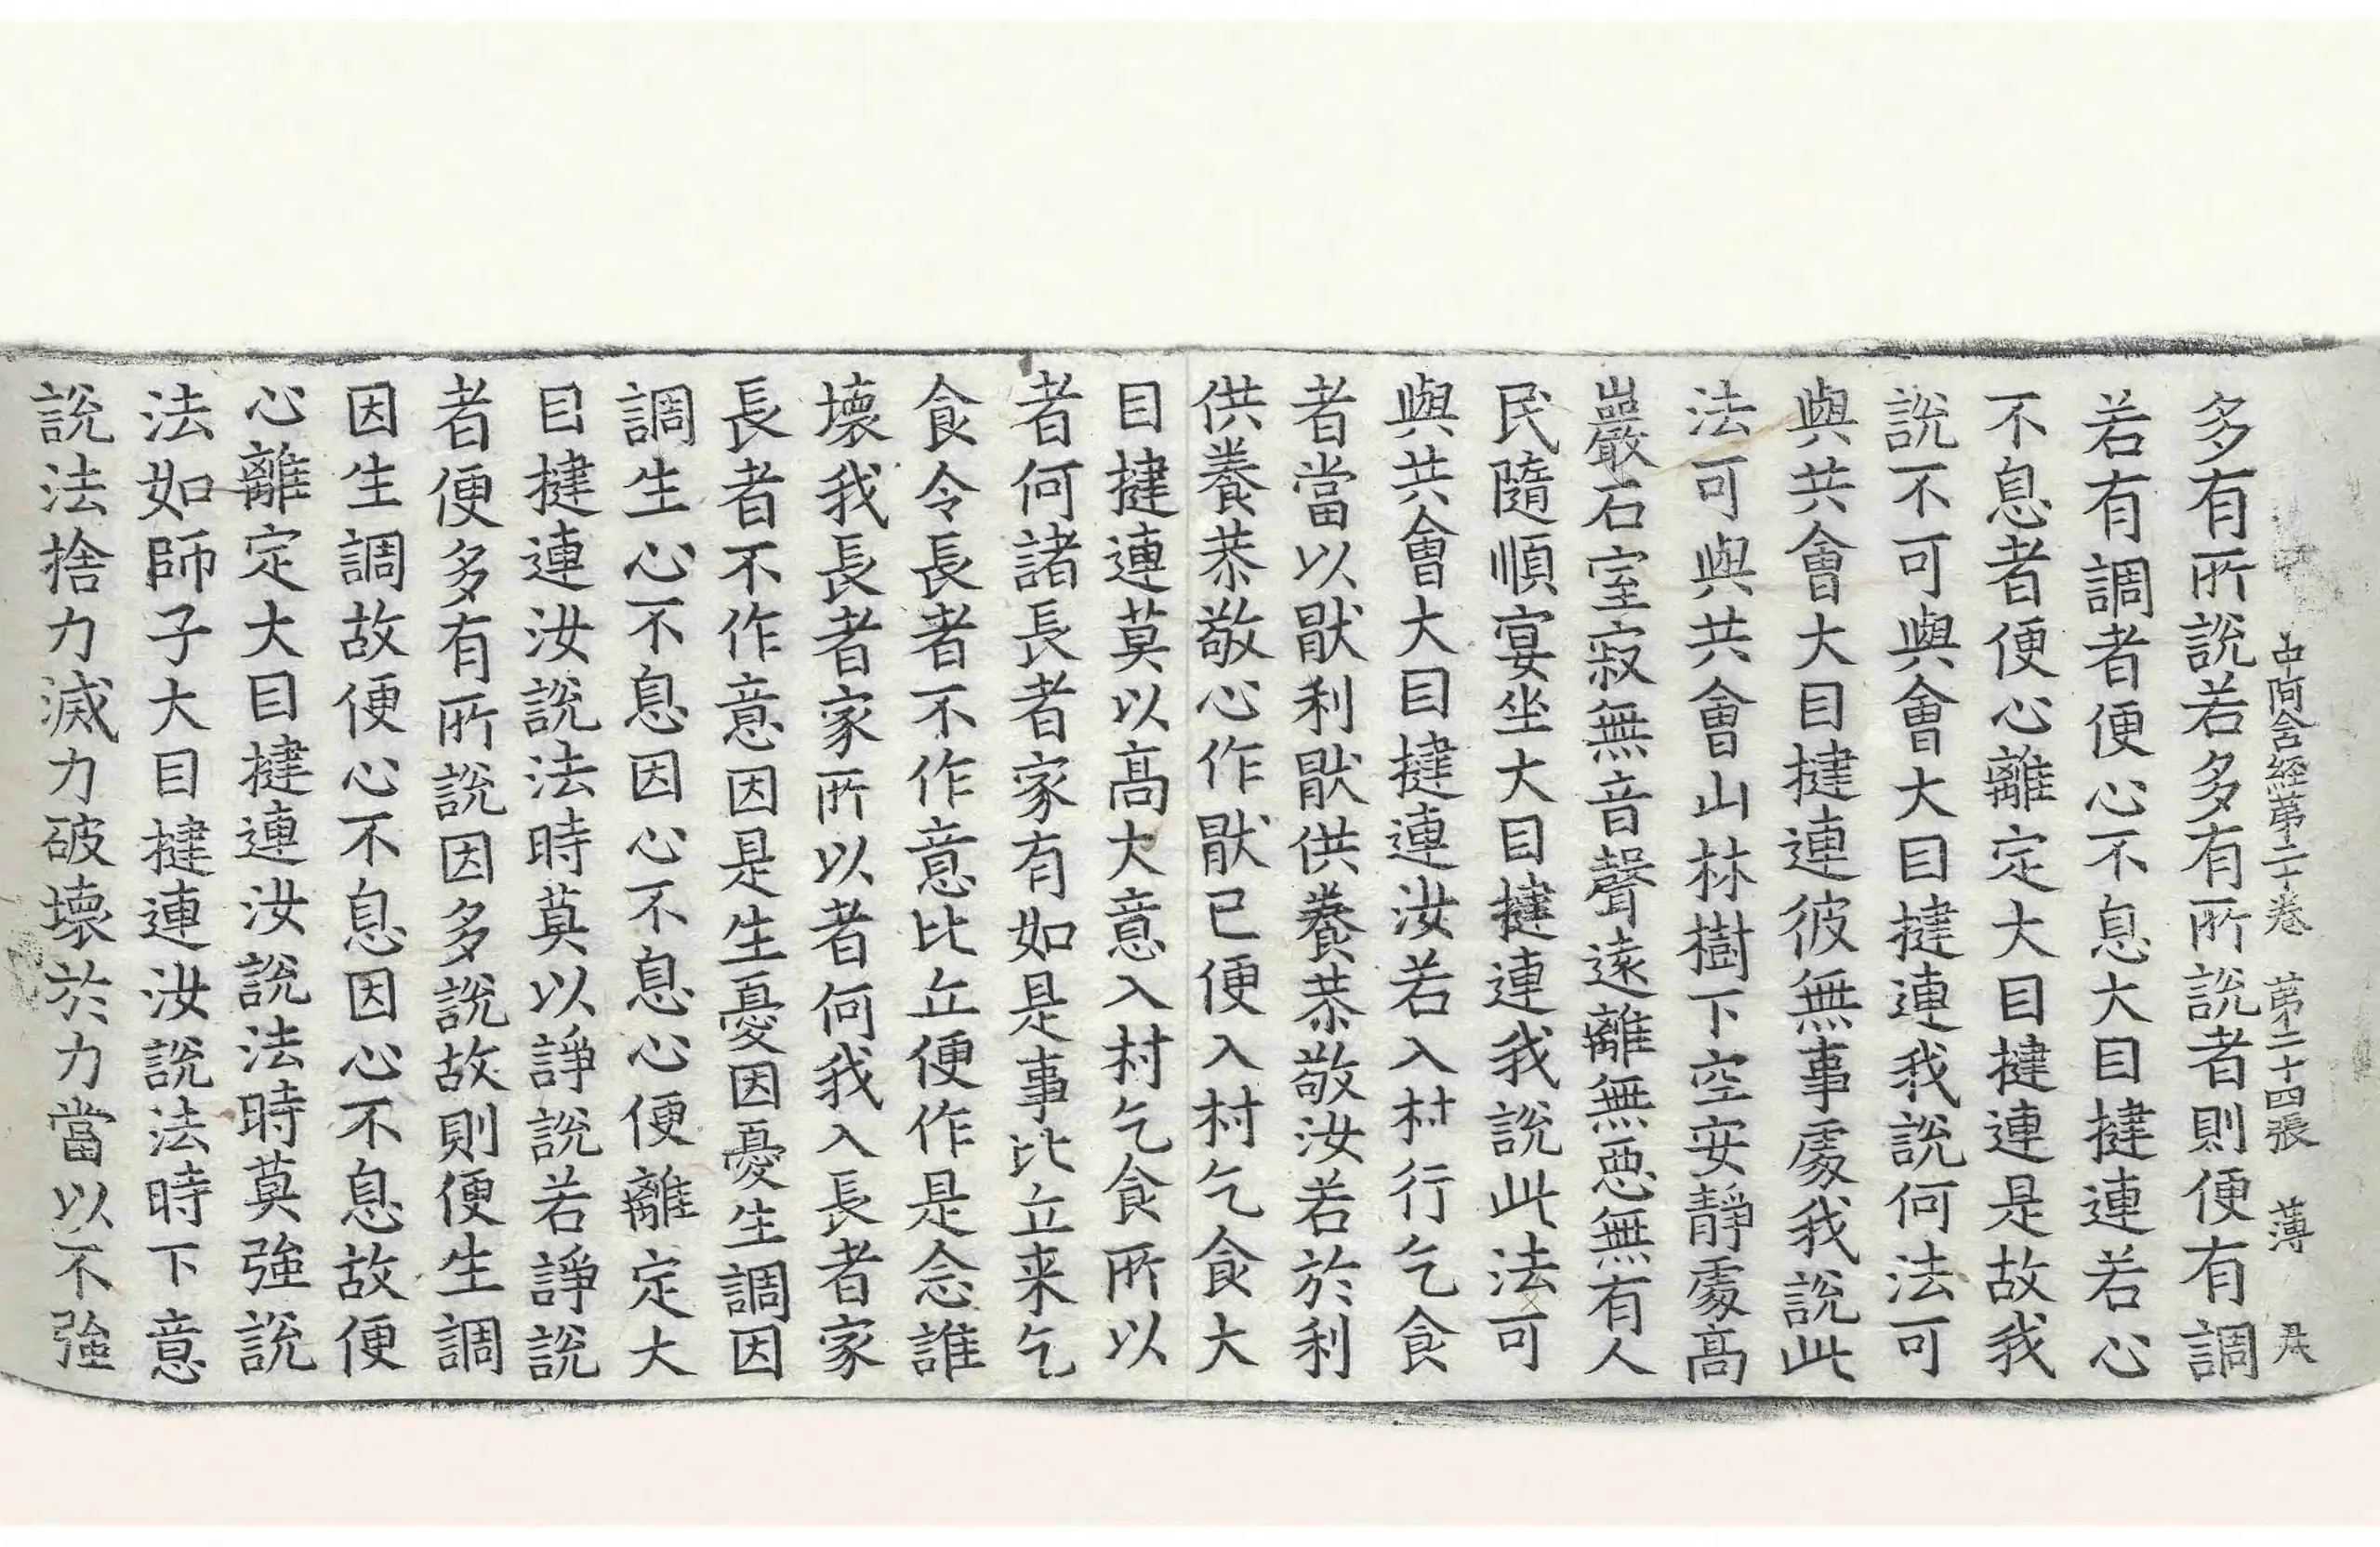 中阿含経第二十卷 第二十四張 薄
多有所說若多有所說者則便有調
若有調者便心不息大目揵連若心
不息者便心離定大目揵連是故我
說不可與會大目揵連我說何法可
與共會大目揵連彼無事處我說此
法可與共會山林樹下空安靜處高
巖石室寂無音聲遠離無惡無有人
民隨順宴坐大目揵連我說此法可
與共會大目揵連汝若入村行乞食
者當以猒利猒供養恭敬汝若於利
供養恭敬心作猒已便入村乞食大
目揵連莫以高大意入村乞食所以
者何諸長者家有如是事比丘来乞
食令長者不作意比丘便作是念誰
壞我長者家所以者何我入長者家
長者不作意因是生憂因憂生調因
調生心不息因心不息心便離定大
目揵連汝說法時莫以諍說若諍說
者便多有所說因多說故則便生調
因生調故便心不息因心不息故便
心離定大目揵連汝說法時莫強說
法如師子大目揵連汝說法時下意
說法捨力滅力破壞於力當以不強